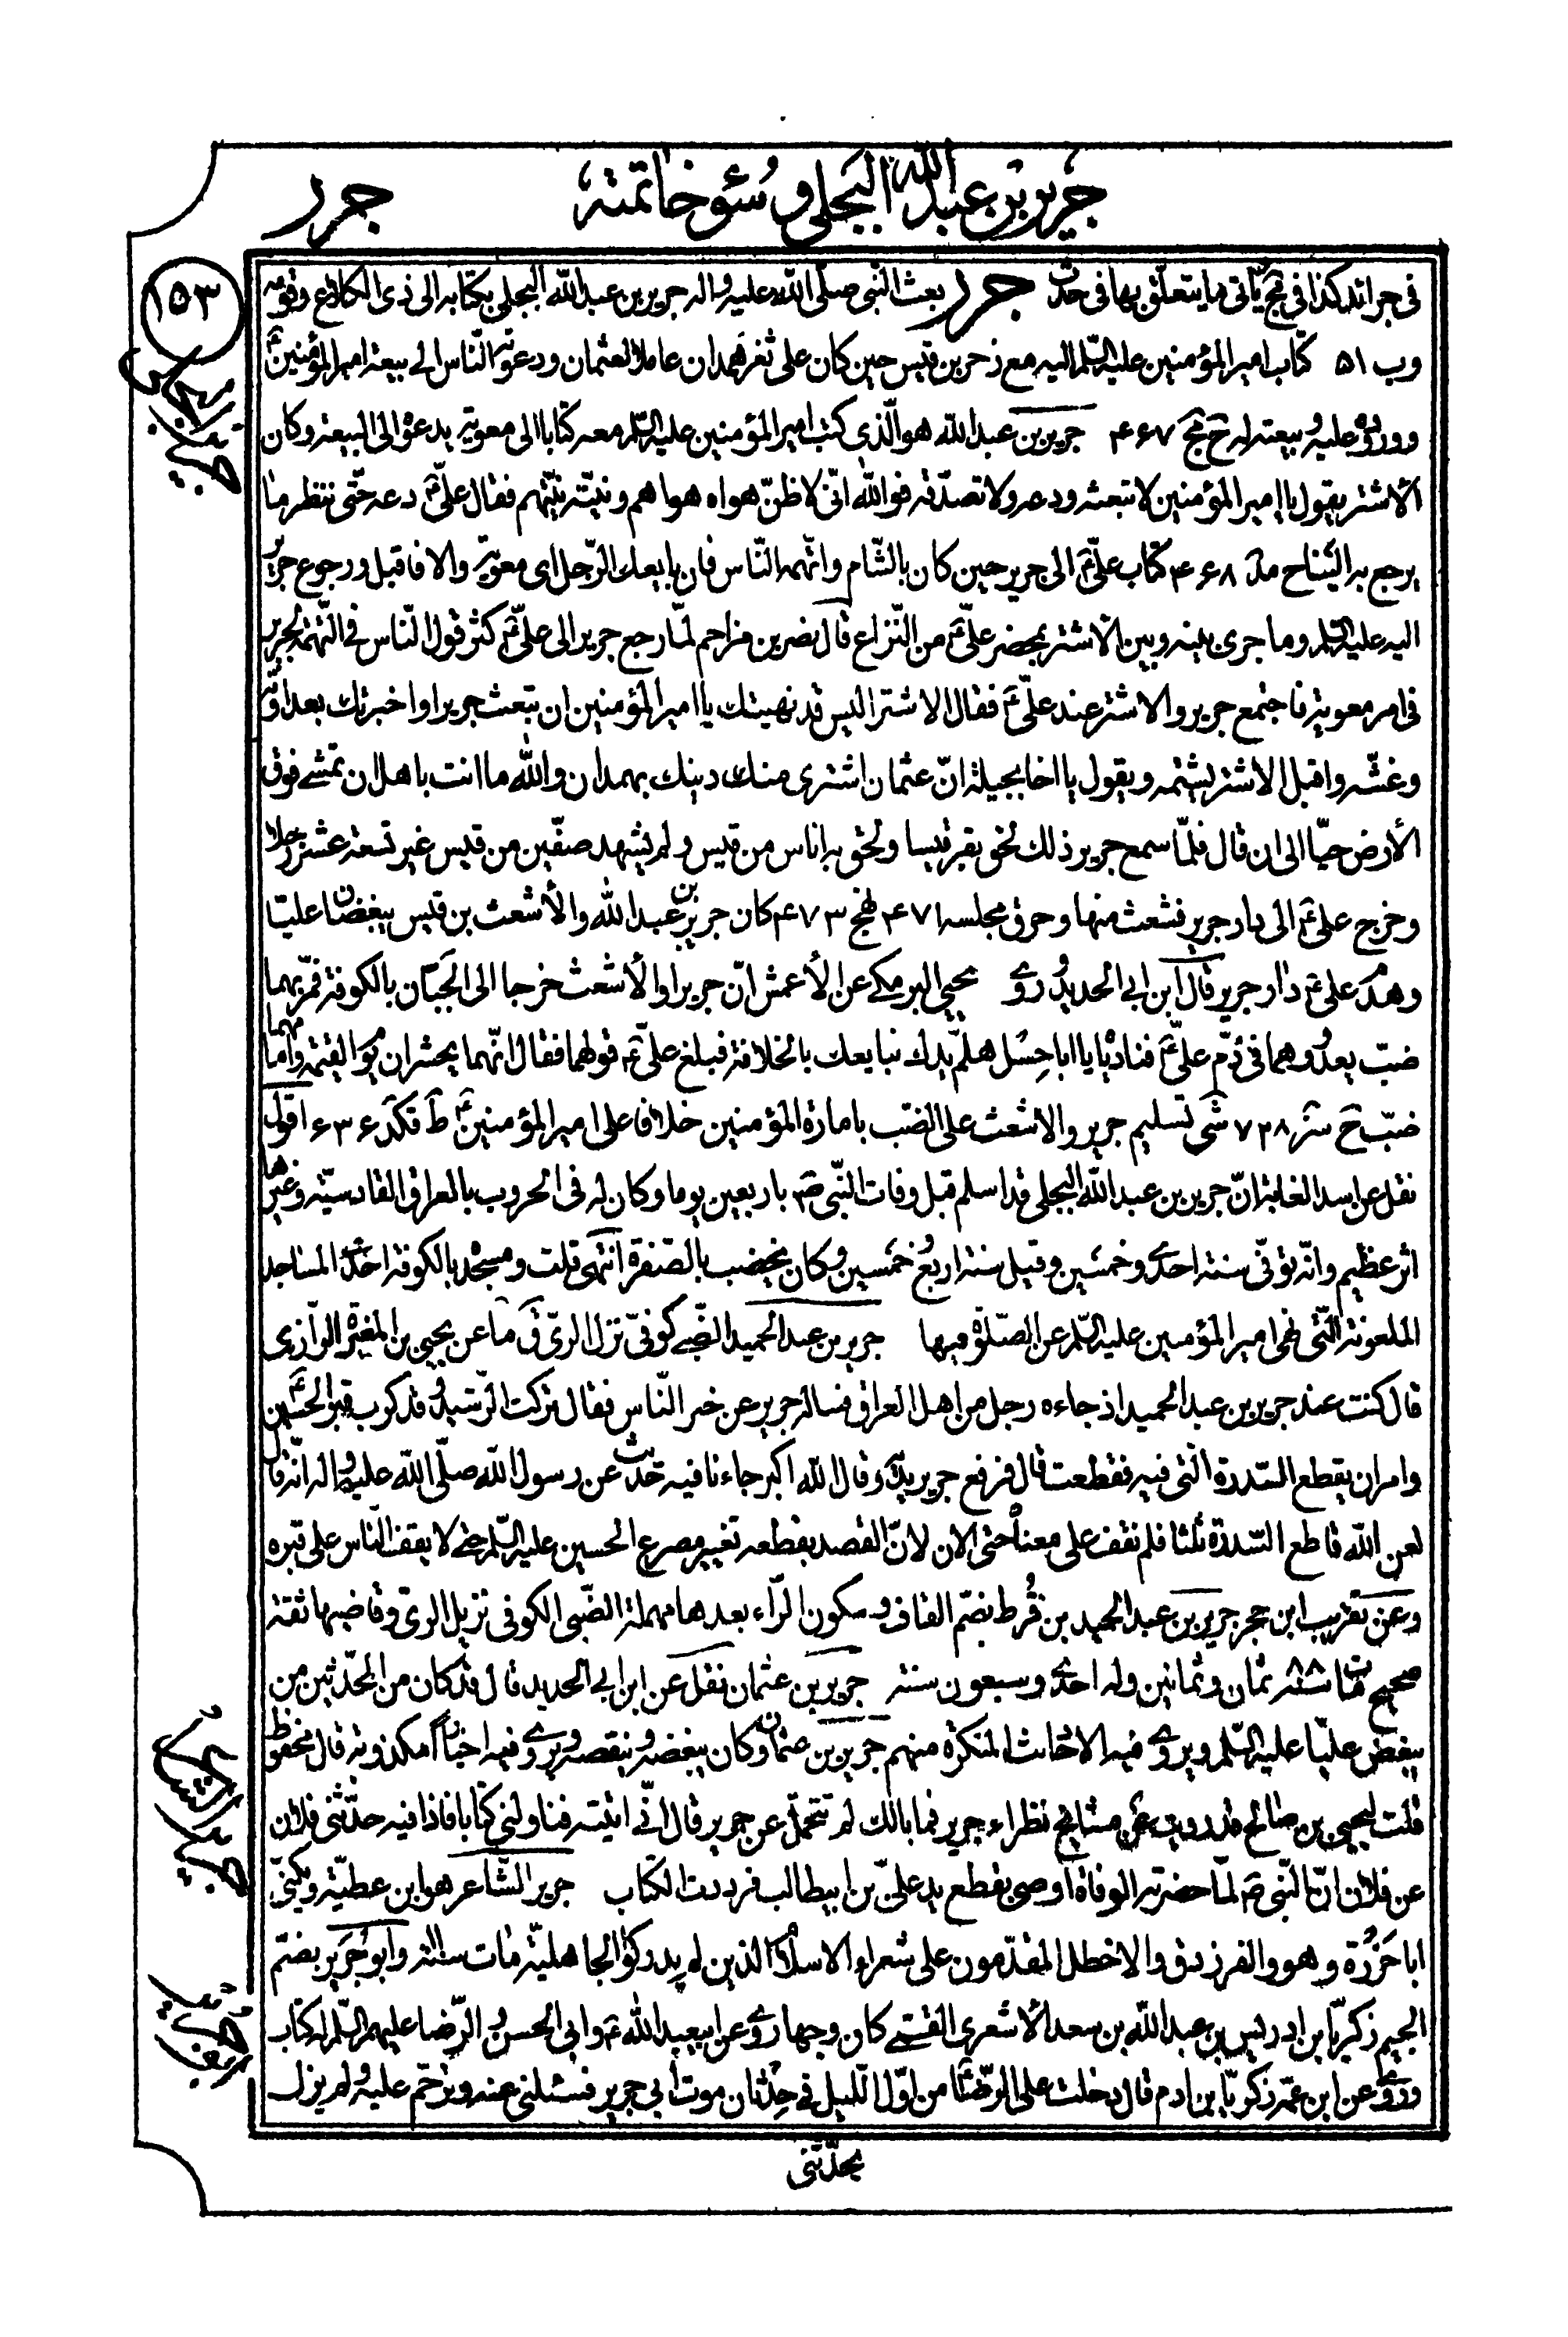 جرير بن عبد الله البجلي وسوء خاتمته جرر
١٥٣
في جرائد كذا في مج يأتي ما يتعلّق بها في حدث جرر بعث النّبي صلّى الله عليه واله جرير بن عبد الله البجلي بكتابه الى ذي الكلاع وقومه
وب ٥١ كتاب امير المؤمنين عليه السّلم اليه مع زحر بن قيس حين كان على ثغر همدان عاملا لعثمان ودعوته النّاس الى بيعة امير المؤمنين ع
ووروده عليه وبيعته له ح مج ٤٦٧ جرير بن عبد الله هو الّذي كتب امير المؤمنين عليه السّلم معه كتابا الى معوية يدعوه الى البيعة وكان
الأشتر يقول يا امير المؤمنين لا تبعثه ودعه ولا تصدّقه فوالله انّي لاظنّ هواه هواهم ونيّته نيّتهم فقال عليّ ع دعه حتّى ننظر ما
يرجع به الينا ح مد ٤٦٨ كتاب عليّ ع الى جرير حين كان بالشّام واتّهمه النّاس فان بايعك الرّجل اى معوية والا فاقبل ورجوع جرير
اليه عليه السّلم وما جرى بينه وبين الأشتر بمحضر عليّ ع من النّزاع قال نصر بن مزاحم لمّا رجع جرير الى عليّ ع كثر قول النّاس في التّهمة لجرير
في امر معوية فاجتمع جرير والاشتر عند عليّ ع فقال الاشتر اليس قد نهيتك يا امير المؤمنين ان تبعث جريرا واخبرتك بعداوته
وغشّه واقبل الاشتر يشتمه ويقول يا اخا بجيلة انّ عثمان اشترى منك دينك بهمدان والله ما انت باهل ان تمشي فوق
الأرض حيّا الى ان قال فلمّا سمع جرير ذلك لحق بقرقيسا ولحق به اناس من قيس ولم يشهد صفّين من قيس غير تسعة عشر رجلا
وخرج علي ع الى دار جرير فشعث منها وحرق مجلسه ٤٧١ نهج ٤٧٣ كان جرير بن عبد الله والأشعث بن قيس يبغضان عليّا
وهدم علي ع دار جرير قال ابن ابي الحديد وروى يحيى البرمكي عن الأعمش انّ جريرا والأشعث خرجا الى الجبّان بالكوفة فمرّ بهما
ضبّ يعدو وهما في ذمّ عليّ ع فنادياه يا ابا حسل هلمّ يدك نبايعك بالخلافة فبلغ عليّ ع قولهما فقال انّهما يحشران يوم القيمة وامامهما
ضبّ ح شر ٧٣٨ شى تسليم جرير والاشعث على الضب بامارة المؤمنين خلافا على امير المؤمنين ع ط قكد ٦٣٦ اقول
نقل عن اسد الغابة انّ جرير بن عبد الله البجلي قد اسلم قبل وفات النّبي ص باربعين يوما وكان له في الحروب بالعراق القادسيّة وغيرها
اثر عظيم وانّه توفّي سنة احدى وخمسين وقيل سنة اربع وخمسين وكان يخضب بالصّفرة انتهى قلت ومسجده بالكوفة احد المساجد
الملعونة الّتي نهى امير المؤمنين عليه السّلم عن الصّلوة فيها جرير بن عبد الحميد الضّبي كوفيّ نزل الريّ ق ما عن يحيى بن المغيرة الرّازي
قال كنت عند جرير بن عبد الحميد اذ جاءه رجل من اهل العراق فساله جرير عن خبر النّاس فقال تركت الرّشيد وقد كرب قبر الحسين ع
وامر ان يقطع السّدرة الّتي فيه فقطعت قال فرفع جرير يديه وقال الله اكبر جاءنا فيه حديث عن رسول الله صلّى الله عليه واله انّه قال
لعن الله قاطع السّدرة ثلثا فلم نقف على معناه حتى الان لانّ القصد بقطعه تغيير مصرع الحسين عليه السّلم حتى لا يقف النّاس على قبره
وعن تقريب ابن حجر جرير بن عبد الحميد بن قُرط بضمّ القاف وسكون الرّاء بعدها مهملة الضّبي الكوفي نزيل الري وقاضيها ثقة
صحيح مات سنة ٨٨ ثمان وثمانين وله احدى وسبعون سنة جرير بن عثمان نقل عن ابن ابي الحديد قال قد كان من المحدّثين من
يبغض عليّا عليه السّلم ويروى فيه الاحاديث المنكرة منهم جرير بن عثمان وكان يبغضه وينقصه ويروى فيه اخبارا مكذوبة قال محفوظ
قلت ليحيى بن صالح قد رويت عن مشايخ نظراء جرير فما بالك لم تتحمّل عن جرير قال انّي اتيته فناولني كتابا فاذا فيه حدّثني فلان
عن فلان انّ النّبي ص لمّا حضرته الوفاة اوصى بقطع يد عليّ بن ابيطالب فرددت الكتاب جرير الشّاعر هو ابن عطيّة ويكنّى
ابا حَزْرَة وهو والفرزدق والاخطل المقدّمون على شعراء الاسلام الذين لم يدركوا الجاهليّة مات سنة وابو جُرَير بضمّ
الجيم زكريّا بن ادريس بن عبد الله بن سعد الأشعري القمّي كان وجها روى عن ابيعبد الله ع وابي الحسن والرّضا عليهم السّلم له كتاب
وروى عن ابن عمّه زكريّا بن ادم قال دخلت على الرّضا ع من اوّل اللّيل في حدثان موت ابي جرير فسئلني عنه وترحّم عليه ولم يزل
يحدّثني